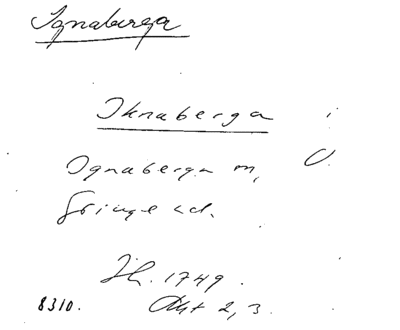 Ignaberga
Iknaberga i
Ignaberga m, O.
Göinge hd.
Jb. 1749.
8310. Akt 2, 3.